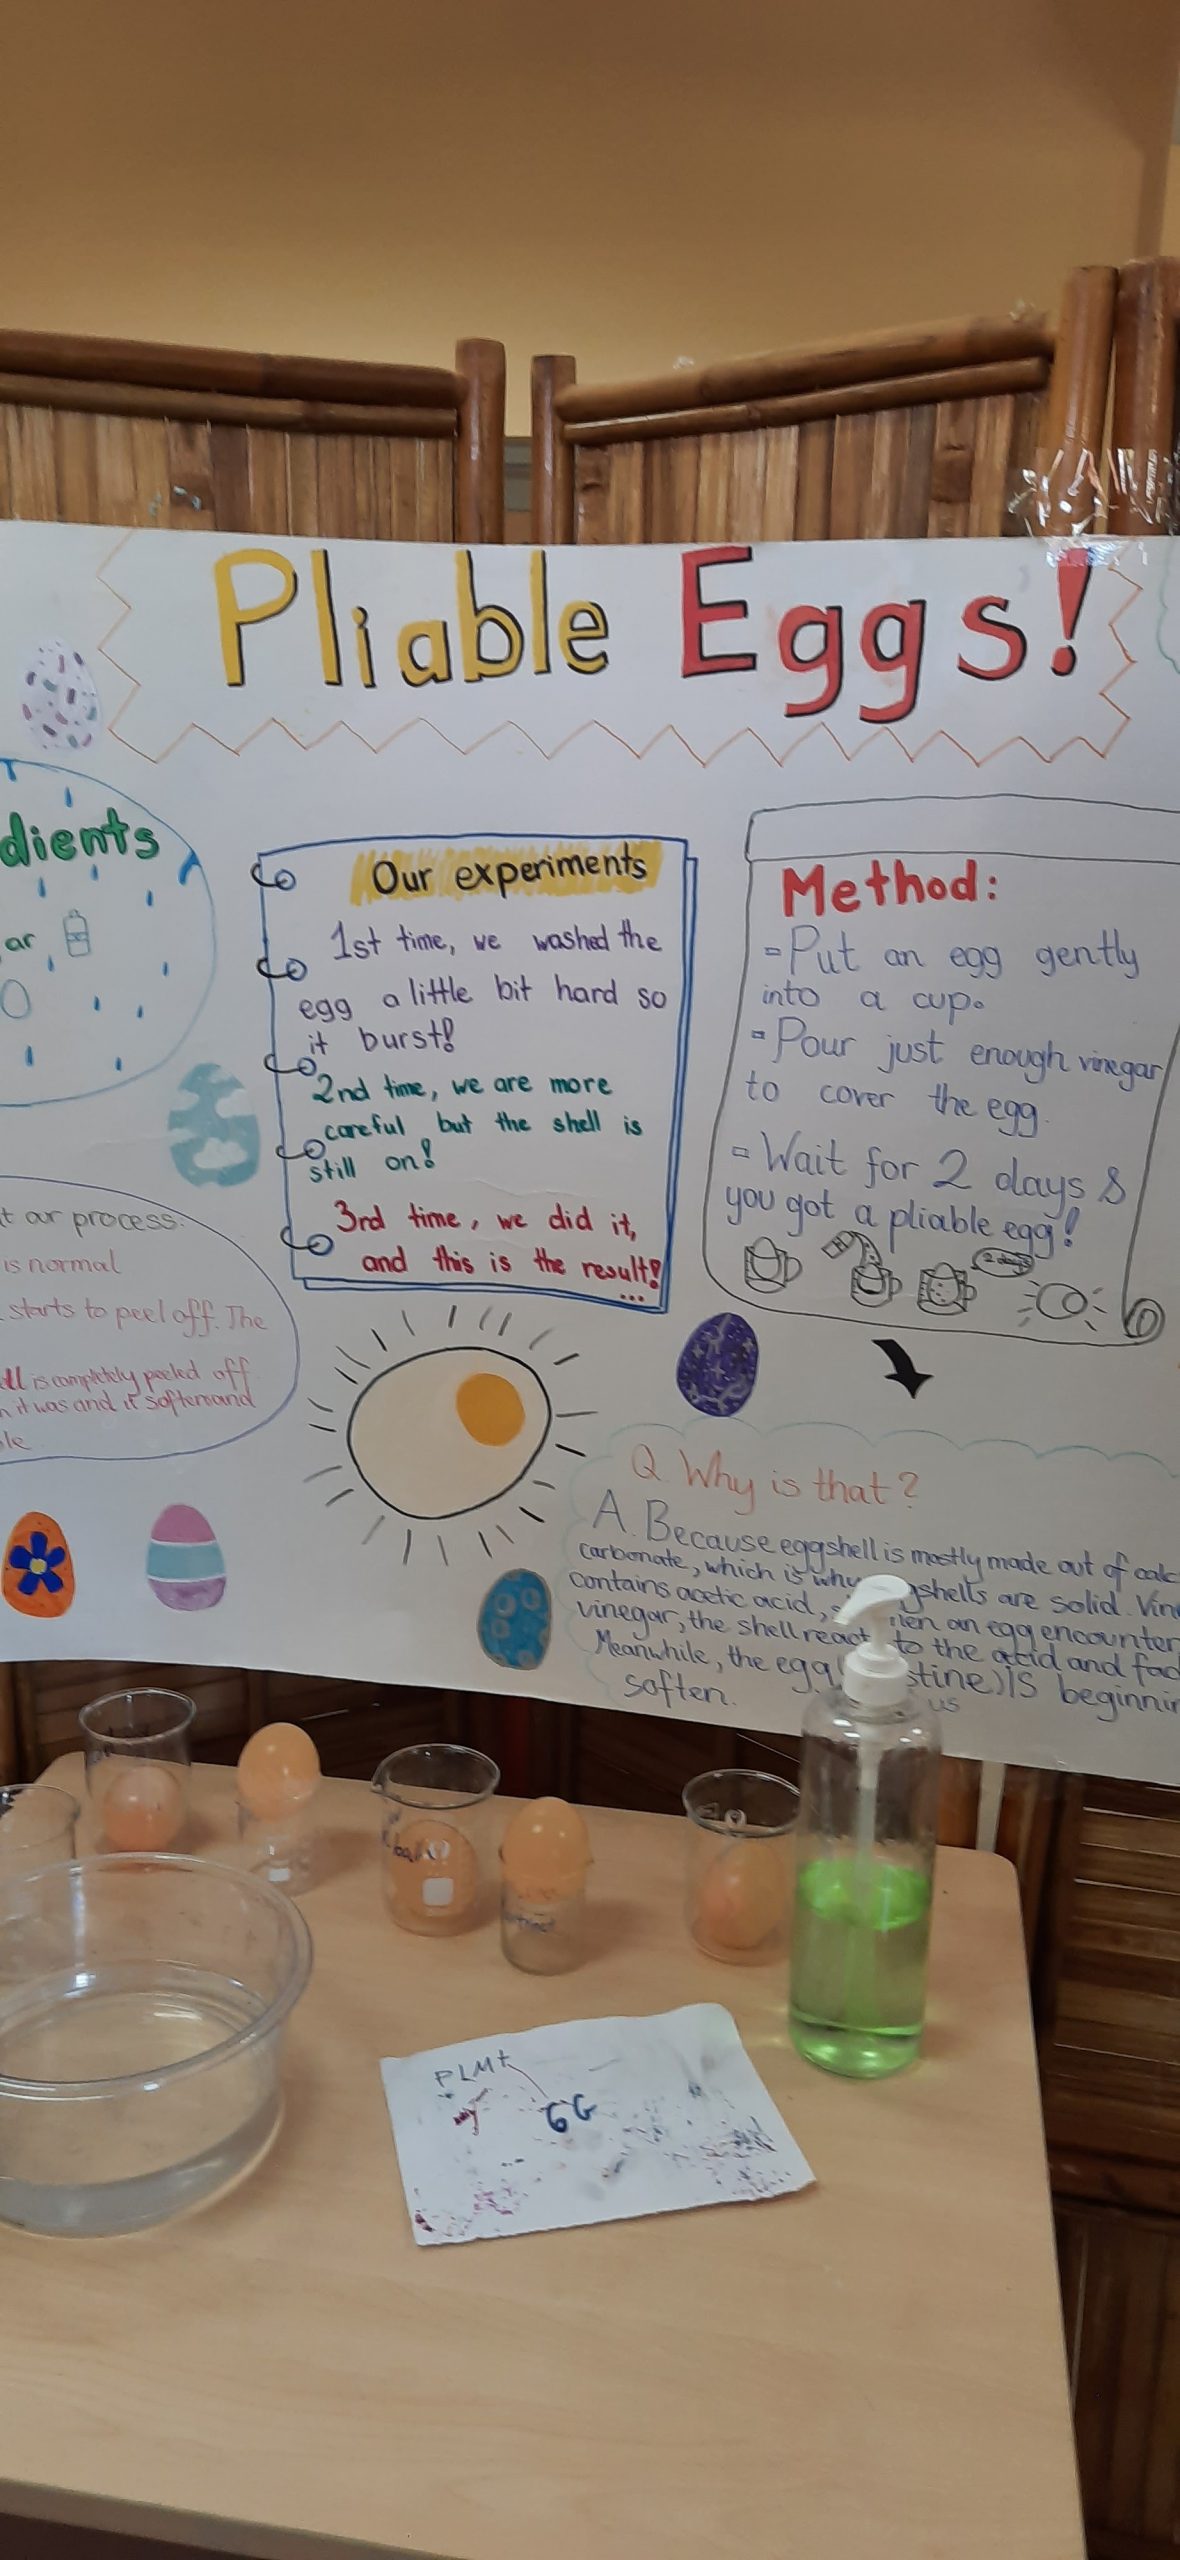 Pliable Eggs!
dients
ar
Our experiments
1st time, we washed the
egg a little bit hard so
it burst!
2nd time, we are more
careful but the shell is
still on!
3rd time, we did it,
and this is the result!
...
Method:
- Put an egg gently
into a cup.
- Pour just enough vinegar
to cover the egg.
- Wait for 2 days &
you got a pliable egg!
2 days
t our process:
is normal
starts to peel off. The
ll is completely peeled off
it was and it soften and
le.
Q. Why is that?
A. Because eggshell is mostly made out of calc
carbonate, which is why gshells are solid. Vin
contains acetic acid, when an egg encounter
vinegar, the shell react to the acid and fad
Meanwhile, the egg stine) IS beginnin
soften. us
PLMt
GG